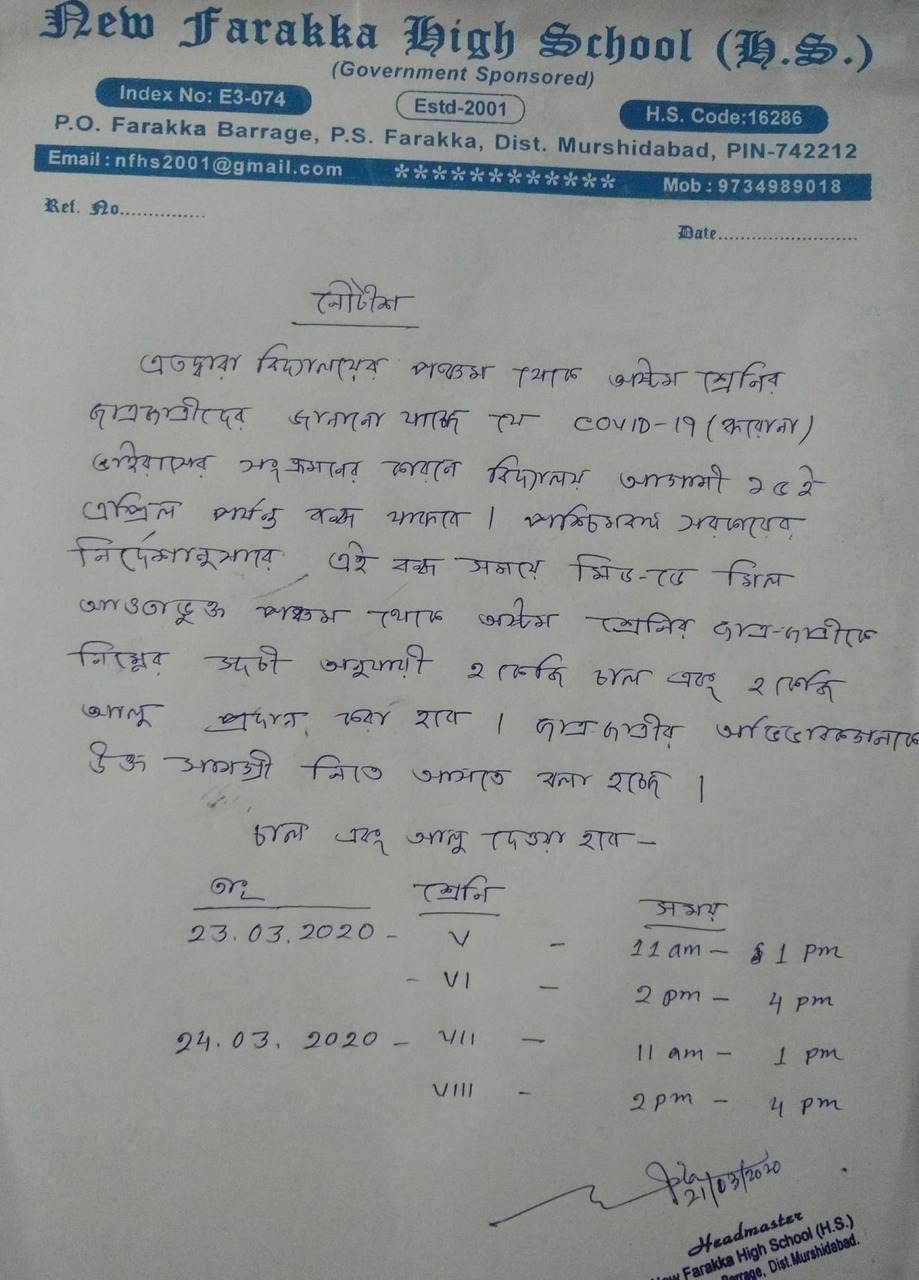 New Farakka High School (H.S.)
(Government Sponsored)
Index No: E3-074 Estd-2001 H.S. Code:16286
P.O. Farakka Barrage, P.S. Farakka, Dist. Murshidabad, PIN-742212
Email : nfhs2001@gmail.com ************ Mob : 9734989018
Ref. No............... Date..........................
নোটীশ
এতদ্বারা বিদ্যালয়ের পঞ্চম থেকে অষ্টম শ্রেনির
ছাত্রছাত্রীদের জানানো যাচ্ছে যে COVID-19 (করোনা)
ভাইরাসের সংক্রমনের কারনে বিদ্যালয় আগামী ১৫ই
এপ্রিল পর্যন্ত বন্ধ থাকবে । পশ্চিমবঙ্গ সরকারের
নির্দেশানুসারে এই বন্ধ সময়ে মিড-ডে মিল
আওতাভুক্ত পঞ্চম থেকে অষ্টম শ্রেনির ছাত্র-ছাত্রীকে
নিম্নের সূচী অনুযায়ী ২ কেজি চাল এবং ২ কেজি
আলু প্রদান করা হবে । ছাত্র-ছাত্রীর অভিভাবকগনকে
উক্ত সামগ্রী নিতে আসতে বলা হচ্ছে ।
চাল এবং আলু দেওয়া হবে –
তাং শ্রেনি সময়
23.03.2020 - V - 11 am - 1 pm
- VI - 2 pm - 4 pm
24.03.2020 - VII - 11 am - 1 pm
VIII - 2 pm - 4 pm
21/03/2020
Headmaster
New Farakka High School (H.S.)
Barrage, Dist.Murshidabad.